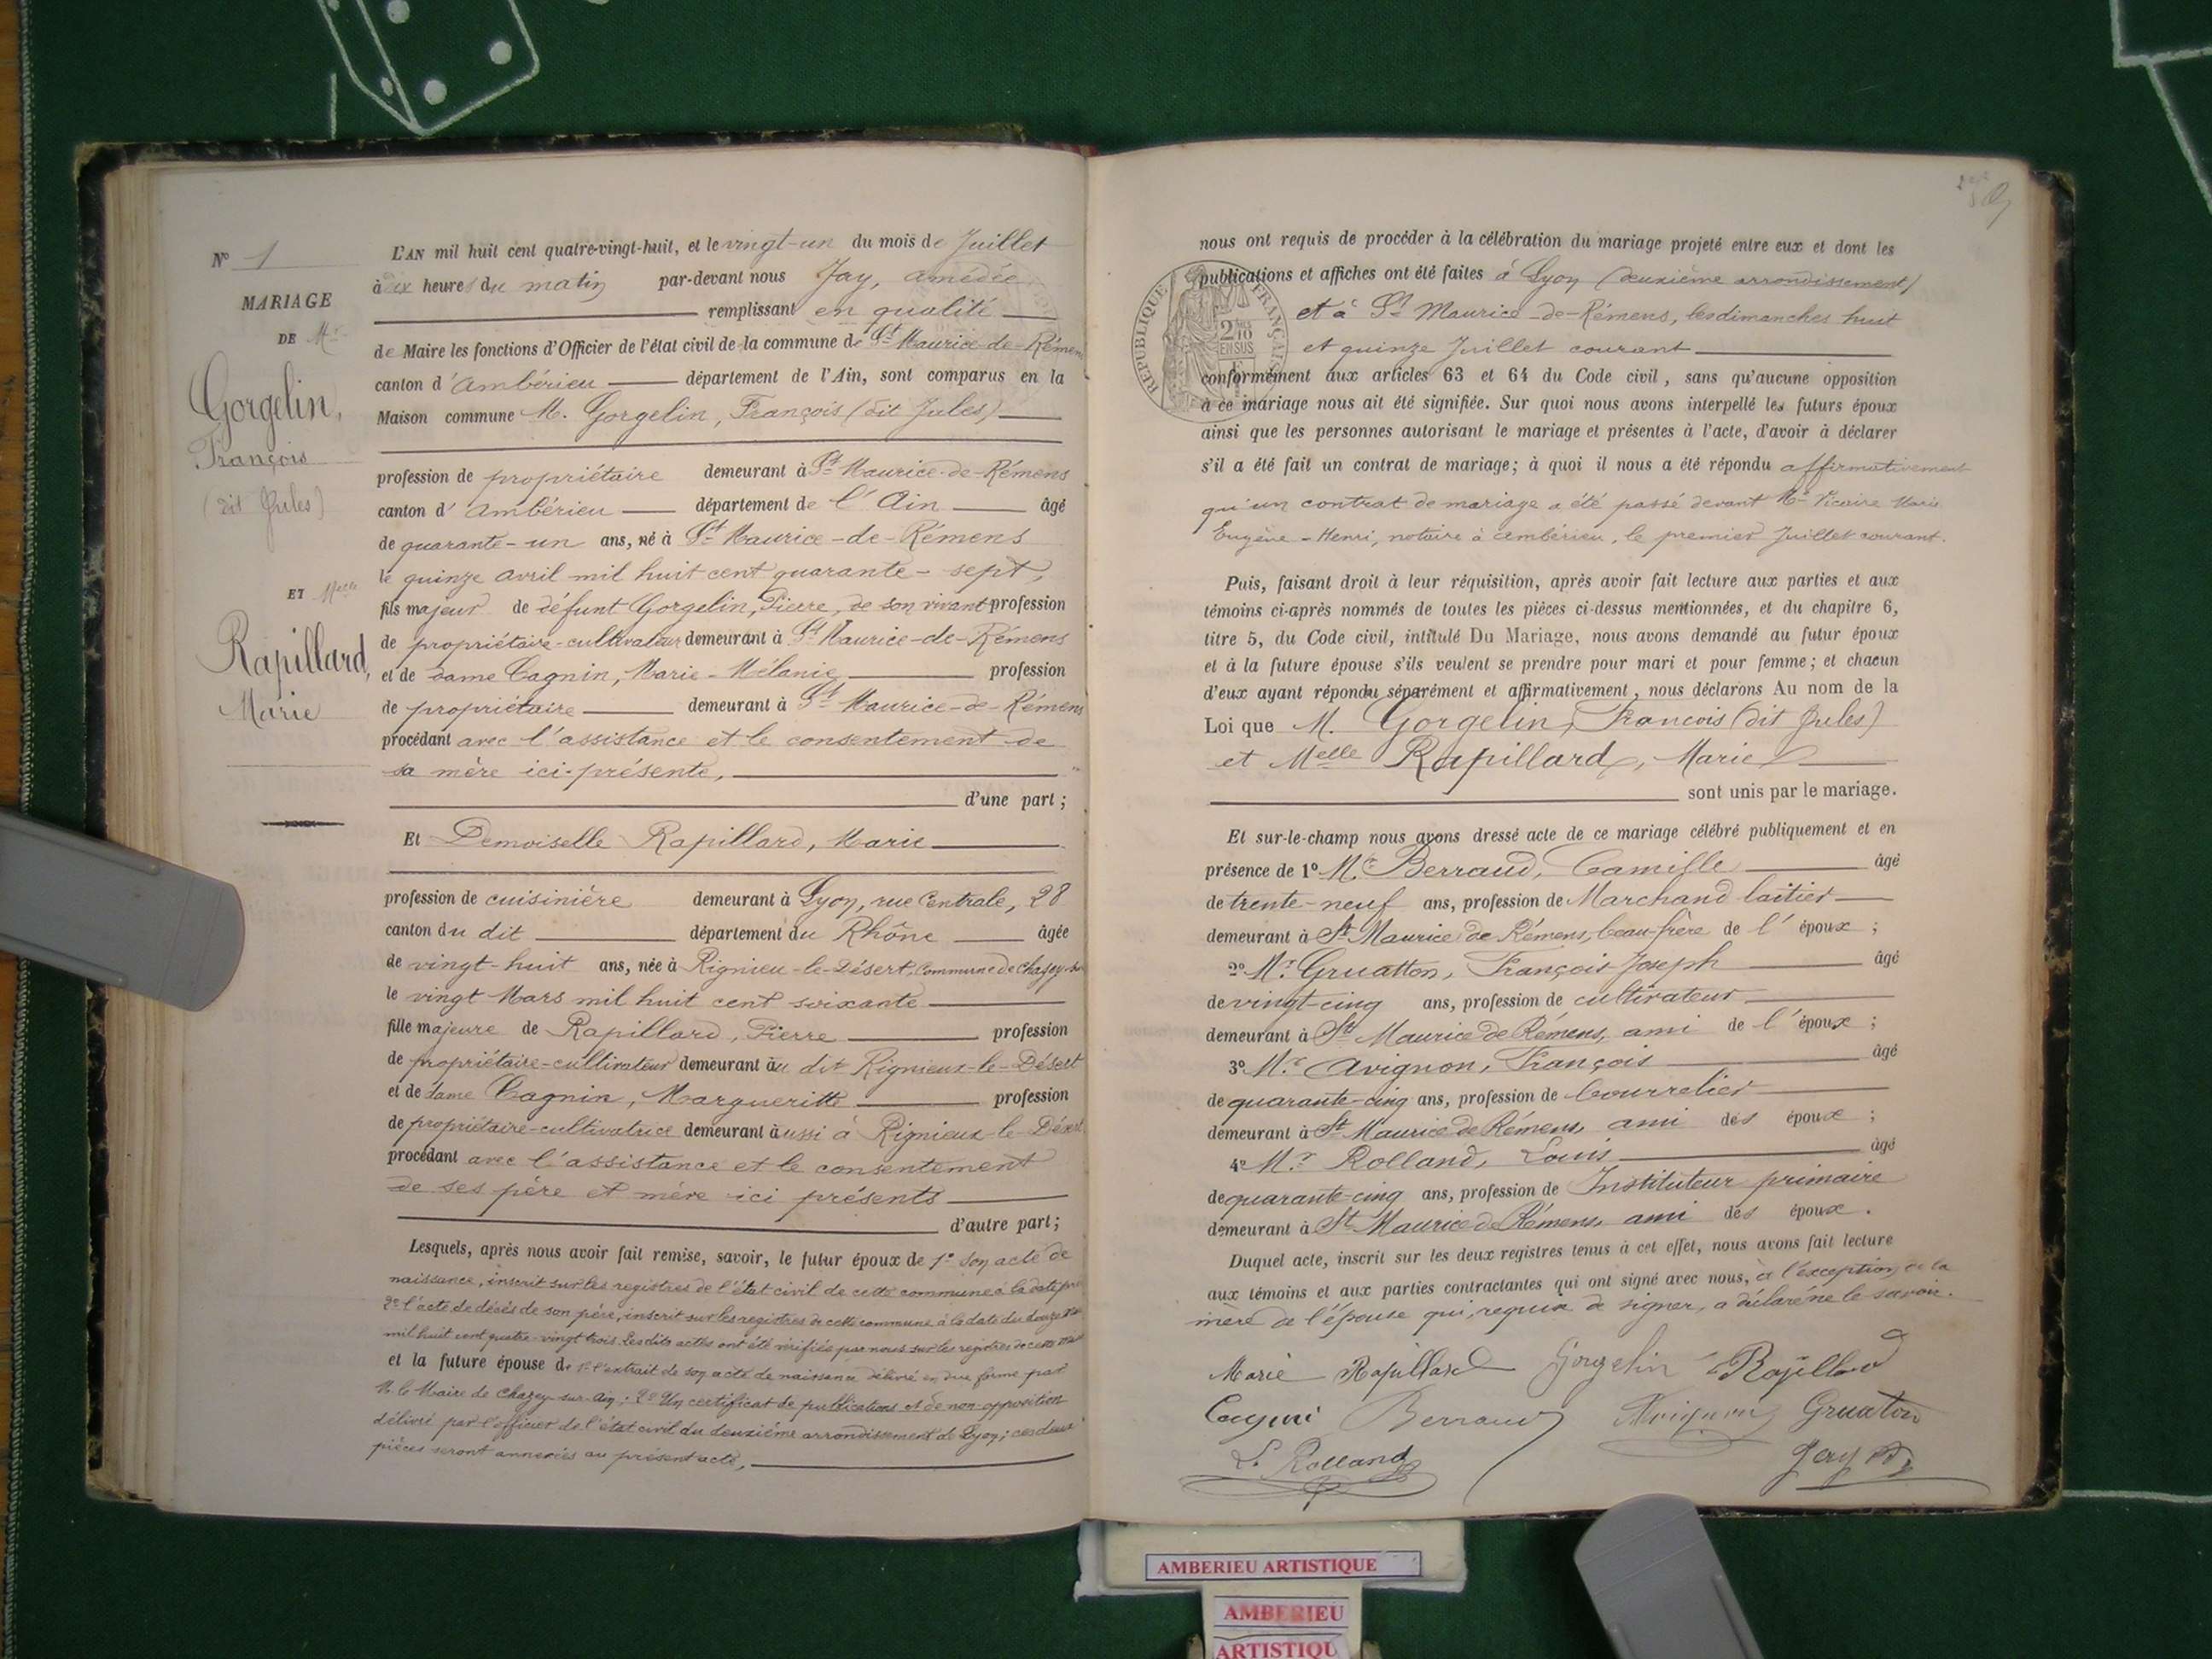 N° 1
MARIAGE
DE Mr
Gorgelin,
François
(dit Jules)
ET Melle
Rapillard,
Marie
L'AN mil huit cent quatre-vingt-huit, et le vingt-un du mois de Juillet
à dix heures du matin par-devant nous Jay, Amédée
remplissant en qualité
de Maire les fonctions d'Officier de l'état civil de la commune de St Maurice-de-Rémens
canton d'Ambérieu département de l'Ain, sont comparus en la
Maison commune M. Gorgelin, François (dit Jules)
profession de propriétaire demeurant à St Maurice-de-Rémens
canton d'Ambérieu département de l'Ain âgé
de quarante-un ans, né à St Maurice-de-Rémens
le quinze avril mil huit cent quarante-sept,
fils majeur de défunt Gorgelin, Pierre, de son vivant profession
de propriétaire-cultivateur demeurant à St Maurice-de-Rémens
et de dame Cagnin, Marie-Mélanie profession
de propriétaire demeurant à St Maurice-de-Rémens
procédant avec l'assistance et le consentement de
sa mère ici-présente,
d'une part ;
Et Demoiselle Rapillard, Marie
profession de cuisinière demeurant à Lyon, rue Centrale, 28
canton du dit département du Rhône âgée
de vingt-huit ans, née à Rignieu-le-Désert, Commune de Chazey-
le vingt Mars mil huit cent soixante
fille majeure de Rapillard, Pierre profession
de propriétaire-cultivateur demeurant au dit Rignieux-le-Désert
et de dame Cagnin, Margueritte profession
de propriétaire-cultivatrice demeurant aussi à Rignieux-le-Désert
procédant avec l'assistance et le consentement
de ses père et mère ici présents
d'autre part ;
Lesquels, après nous avoir fait remise, savoir, le futur époux de 1° son acte de
naissance, inscrit sur les registres de l'état civil de cette commune à la date
2° l'acte de décès de son père, inscrit sur les registres de cette commune à la date du douze
mil huit cent quatre-vingt trois. Les dits actes ont été vérifiés par nous sur les registres de cette
et la future épouse de 1° l'extrait de son acte de naissance délivré en due forme par
M. le Maire de Chazey-sur-Ain ; 2° Un certificat de publications et de non-opposition
délivré par l'officier de l'état civil du deuxième arrondissement de Lyon ; ces deux
pièces seront annexées au présent acte,
nous ont requis de procéder à la célébration du mariage projeté entre eux et dont les
publications et affiches ont été faites à Lyon (deuxième arrondissement)
et à St Maurice-de-Rémens, les dimanches huit
et quinze Juillet courant
RÉPUBLIQUE FRANÇAISE
2/10
EN SUS
conformément aux articles 63 et 64 du Code civil, sans qu'aucune opposition
à ce mariage nous ait été signifiée. Sur quoi nous avons interpellé les futurs époux
ainsi que les personnes autorisant le mariage et présentes à l'acte, d'avoir à déclarer
s'il a été fait un contrat de mariage ; à quoi il nous a été répondu affirmativement
qu'un contrat de mariage a été passé devant Me Vicaire Marie
Eugène-Henri, notaire à Ambérieu, le premier Juillet courant.
Puis, faisant droit à leur réquisition, après avoir fait lecture aux parties et aux
témoins ci-après nommés de toutes les pièces ci-dessus mentionnées, et du chapitre 6,
titre 5, du Code civil, intitulé Du Mariage, nous avons demandé au futur époux
et à la future épouse s'ils veulent se prendre pour mari et pour femme ; et chacun
d'eux ayant répondu séparément et affirmativement, nous déclarons Au nom de la
Loi que M. Gorgelin, François (dit Jules)
et Melle Rapillard, Marie
sont unis par le mariage.
Et sur-le-champ nous avons dressé acte de ce mariage célébré publiquement et en
présence de 1° Mr Berraud, Camille âgé
de trente-neuf ans, profession de Marchand laitier
demeurant à St Maurice de Rémens, beau-frère de l'époux ;
2° Mr Gruatton, François Joseph âgé
de vingt-cinq ans, profession de cultivateur
demeurant à St Maurice de Rémens, ami de l'époux ;
3° Mr Avignon, François âgé
de quarante-cinq ans, profession de bourrelier
demeurant à St Maurice de Rémens ami des époux ;
4° Mr Rolland, Louis âgé
de quarante-cinq ans, profession de Instituteur primaire
demeurant à St Maurice de Rémens ami des époux.
Duquel acte, inscrit sur les deux registres tenus à cet effet, nous avons fait lecture
aux témoins et aux parties contractantes qui ont signé avec nous, à l'exception de la
mère de l'épouse qui, requise de signer, a déclaré ne le savoir.
Marie Rapillard Gorgelin Rapillard
Cagnin Berraud Avignon Gruatton
L. Rolland Jay A.
AMBERIEU ARTISTIQUE
AMBERIEU
ARTISTIQU